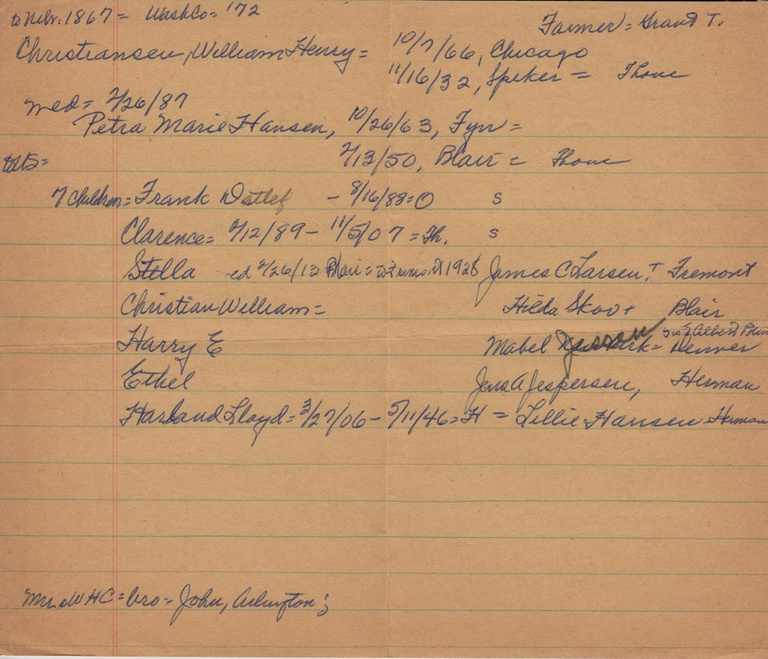 to Nebr. 1867 = Wash Co = '72
Farmer = Grant T.
Christiansen, William Henry = 10/7/66, Chicago
11/16/32, Spiker = Thone
med = 2/26/87
Petra Marie Hansen, 10/26/63, Fyn =
2/13/50, Blair = Thone
7 Children = Frank Detlef - 8/16/88 = O s
Clarence = 2/12/89 - 11/5/07 = Th. s
Stella ed 2/26/13 Blair = to Fremont 1928 James C Larsen, + Fremont
Christian William = Hilda Skov + Blair
Harry E Mabel = Denver
Ethel Jens A Jespersen, Herman
Harland Lloyd = 3/27/06 - 5/11/46 = H = Lillie Hansen Herman
Mr. WHC = bro = John, Arlington;